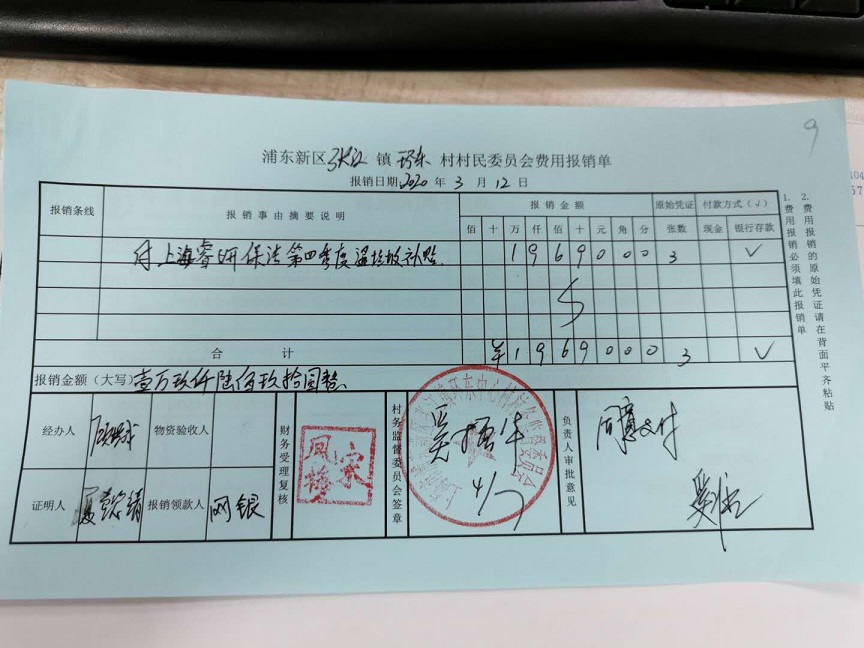 9
浦东新区张江镇环东村村民委员会费用报销单
报销日期2020年3月12日
报销条线 报销事由摘要说明 报销金额 原始凭证 付款方式(√)
佰 十 万 仟 佰 十 元 角 分 张数 现金 银行存款
付上海睿妍保洁第四季度湿垃圾补贴 1 9 6 9 0 0 0 3 √
合计 ¥ 1 9 6 9 0 0 0 3 √
报销金额(大写)壹万玖仟陆佰玖拾圆整
经办人 物资验收人
证明人 报销领款人 网银
财务受理复核
宋凤梅
村务监督委员会签章
4/7
负责人审批意见
同意支付
1.费用报销必须填此报销单
2.费用报销的原始凭证请在背面平齐粘贴